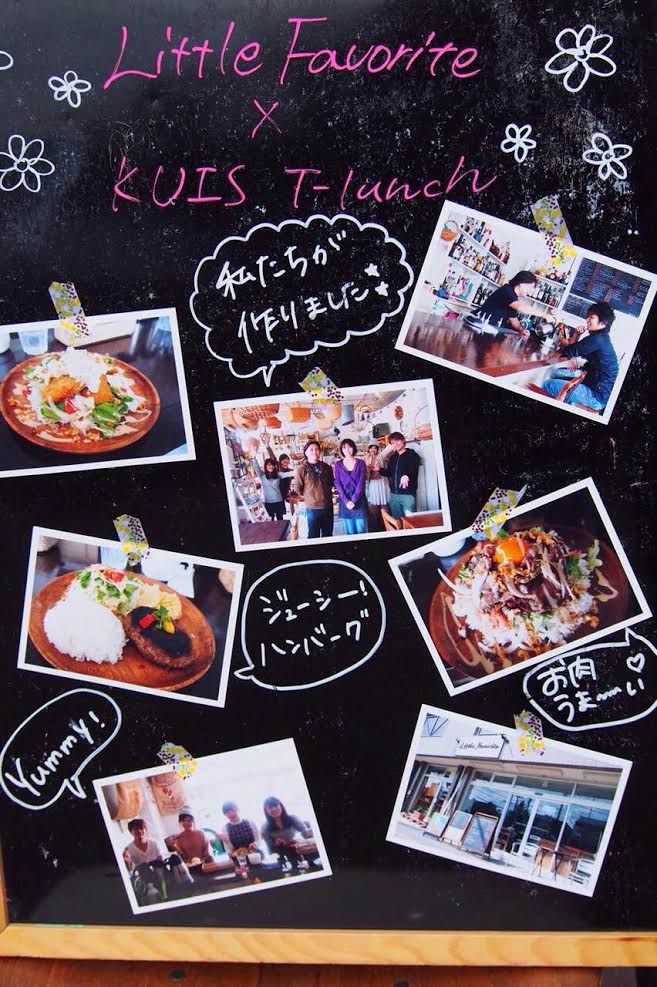 Little Favorite
×
KUIS T-lunch
私たちが
作りました☆
ジューシー!
ハンバーグ
お肉♡
うま〜い
Yummy!
Little Favorite